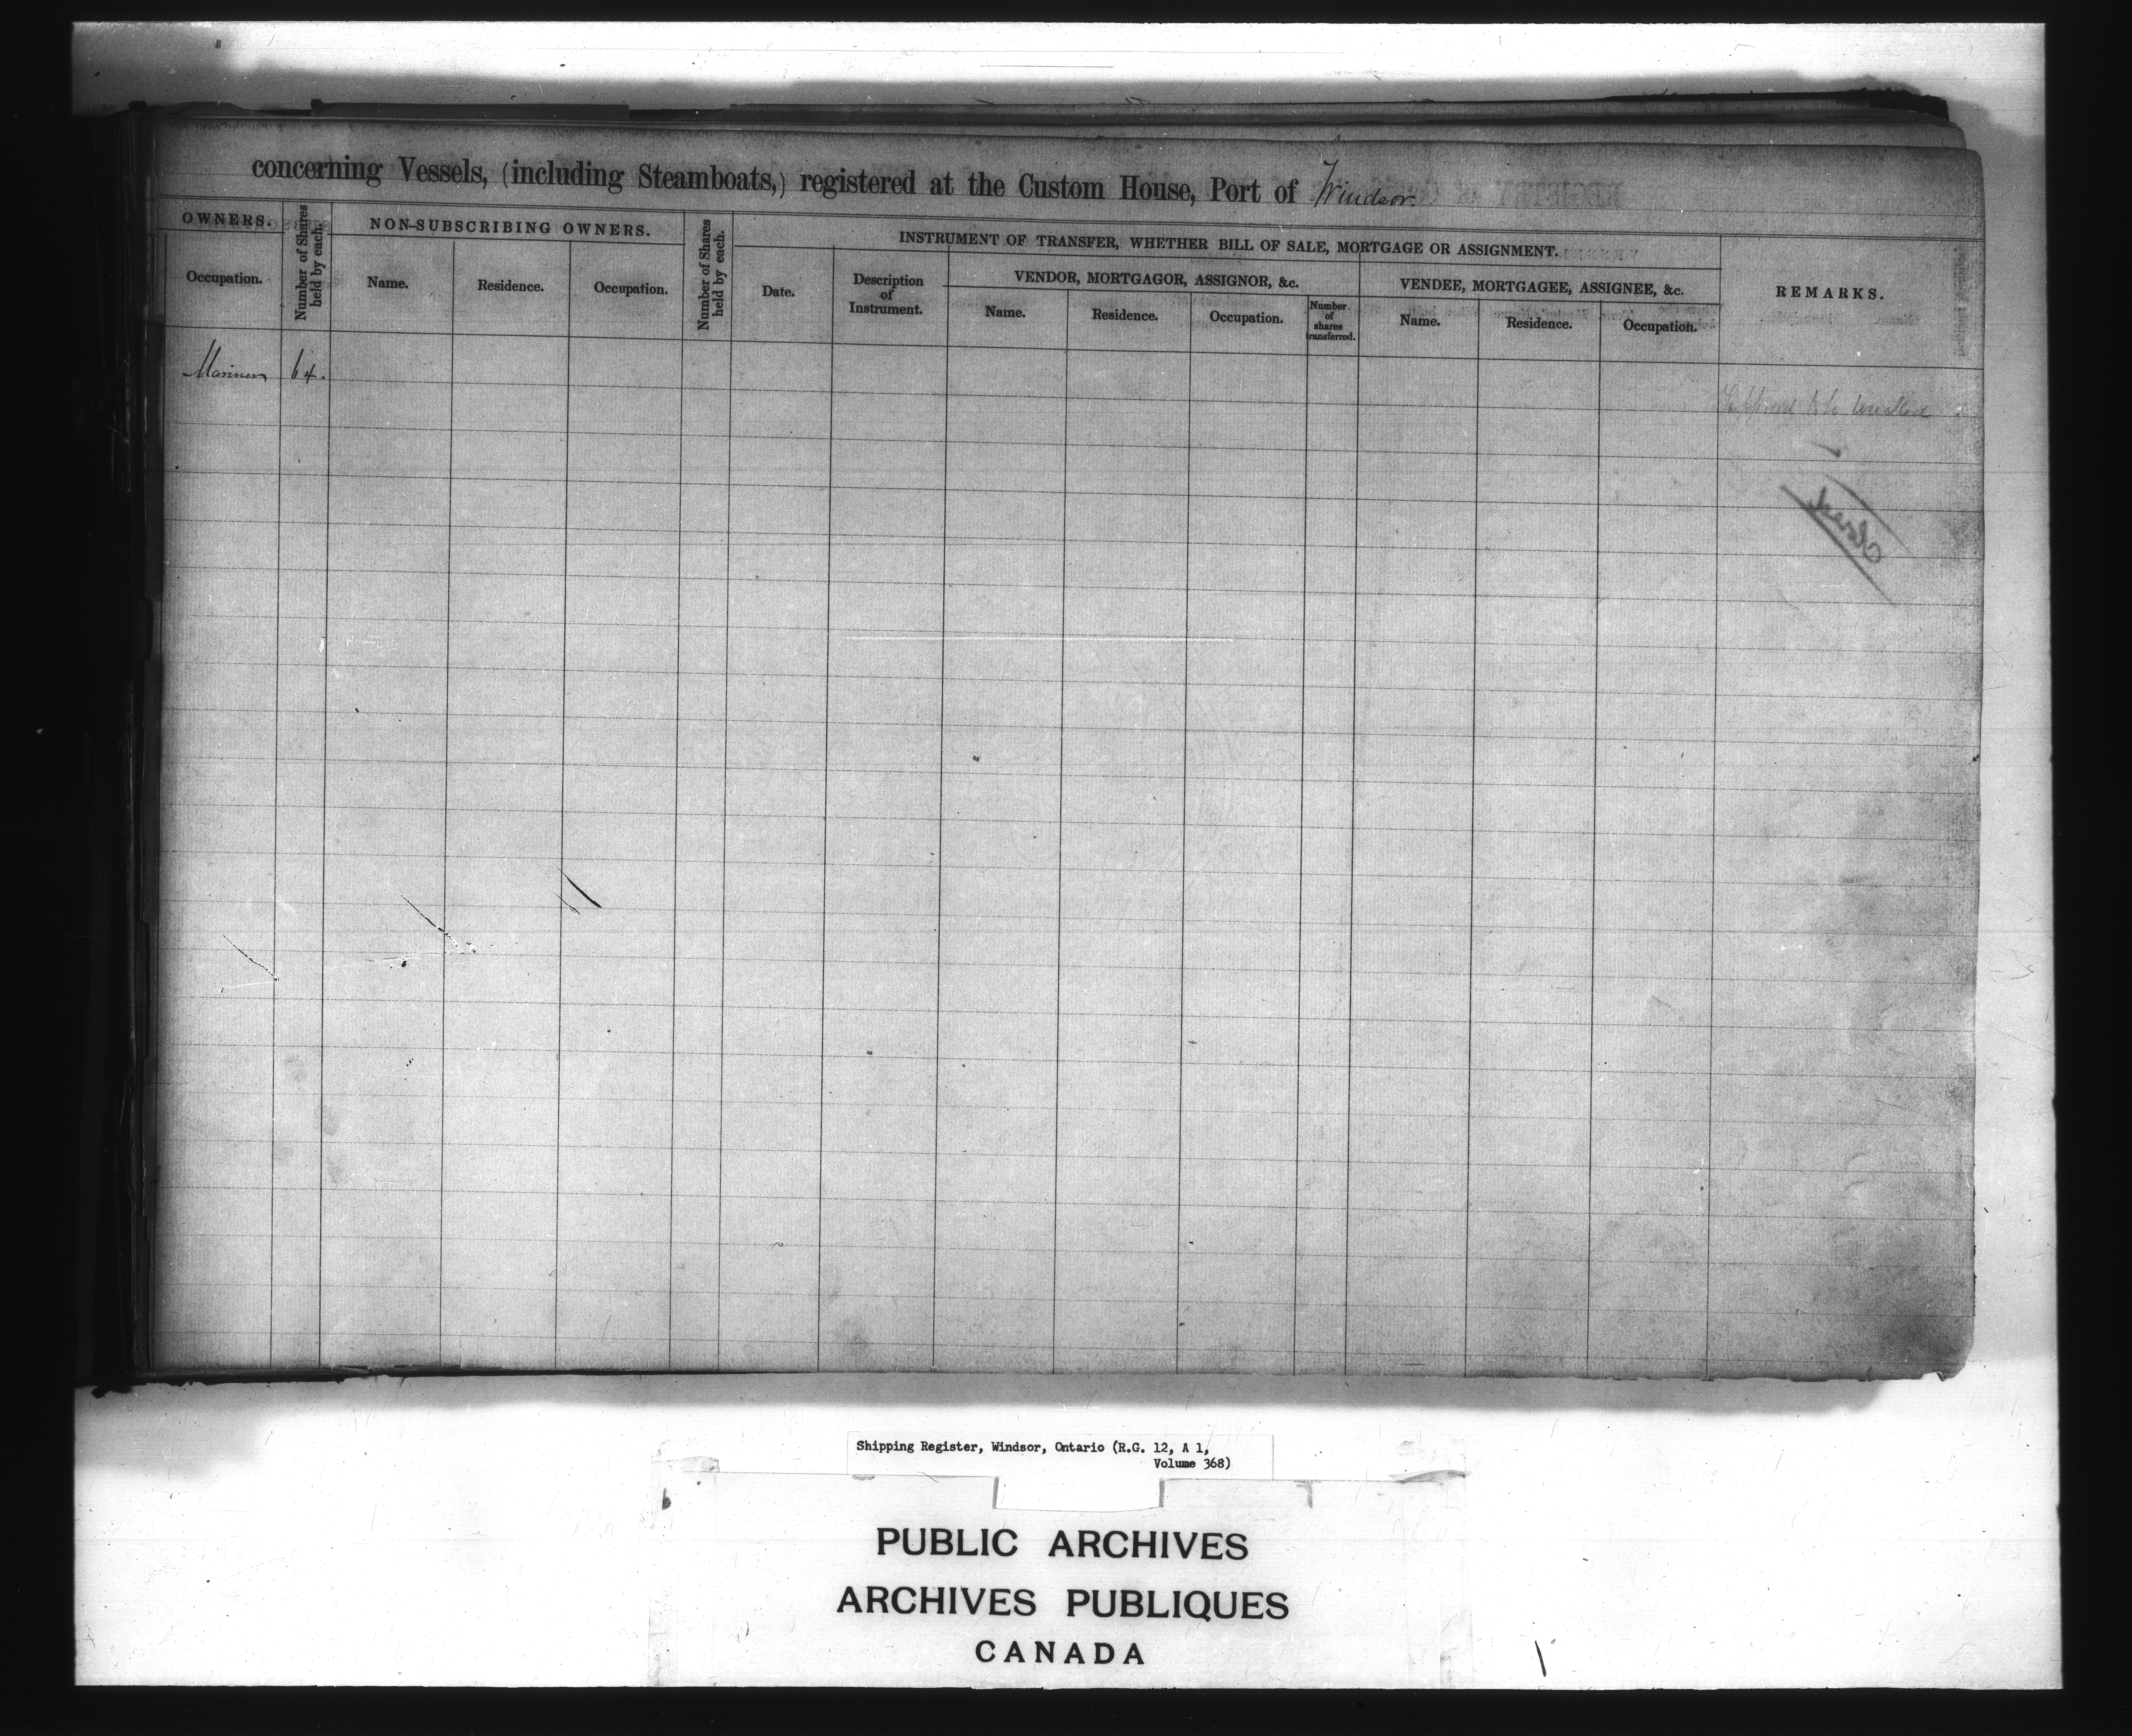 concerning Vessels, (including Steamboats,) registered at the Custom House, Port of Windsor.
OWNERS.
Number of Shares held by each.
NON-SUBSCRIBING OWNERS.
Number of Shares held by each.
INSTRUMENT OF TRANSFER, WHETHER BILL OF SALE, MORTGAGE OR ASSIGNMENT.
REMARKS.
Occupation.
Name.
Residence.
Occupation.
Date.
Description
of
Instrument.
VENDOR, MORTGAGOR, ASSIGNOR, &c.
VENDEE, MORTGAGEE, ASSIGNEE, &c.
Name.
Residence.
Occupation.
Number
of
shares
transferred.
Name.
Residence.
Occupation.
Mariner 64.
Shipping Register, Windsor, Ontario (R.G. 12, A 1,
Volume 368)
PUBLIC ARCHIVES
ARCHIVES PUBLIQUES
CANADA